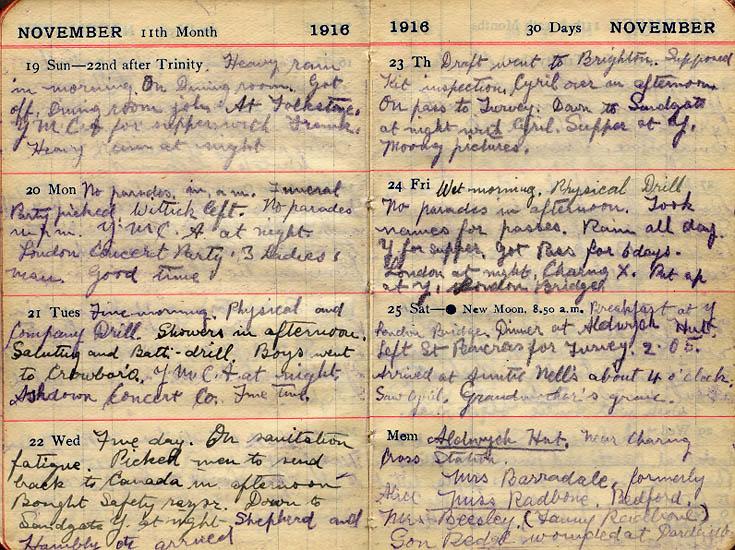 NOVEMBER 11th Month 1916
19 Sun—22nd after Trinity. Heavy rain
in morning. On Dining room. Got
off. Dining room job. At Folkstone.
Y M C A for supper with Frank.
Heavy rain at night
20 Mon No parades in a.m. Funeral
Party picked. Wittick left. No parades
in p.m. Y. M. C. A. at night
London Concert Party. 3 Ladies 1
man. Good time
21 Tues Fine morning. Physical and
Company Drill. Showers in afternoon.
Saluting and Batt-drill. Boys went
to Crowboro. Y M C A at night
Ashdown Concert Co. Fine time.
22 Wed Fine day. On sanitation
fatigue. Picked men to send
back to Canada in afternoon
Bought Safety razor. Down to
Sandgate Y. at night. Shepherd and
Hambly etc arrived
1916 30 Days NOVEMBER
23 Th Draft went to Brighton. Supposed
Kit inspection. Cyril over in afternoon
On pass to Turvey. Down to Sandgate
at night with Cyril. Supper at Y.
Moving pictures.
24 Fri Wet morning. Physical Drill
No parades in afternoon. Took
names for passes. Rain all day.
Y for supper. Got Pass for 6 days.
London at night. Charing X. Put up
at Y. London Bridge
25 Sat—● New Moon, 8.50 a.m. Breakfast at Y
London Bridge. Dinner at Aldwych Hutt.
Left St Pancras for Turvey. 2.05.
Arrived at Auntie Nell's about 4 o'clock.
Saw Cyril. Grandmother's grave.
Mem Aldwych Hut. Near Charing
Cross Station.
Mrs Barradale, formerly
Alice Miss Radbone, Bedford.
Mrs Beesley. (Fanny Radbone)
Son wounded at